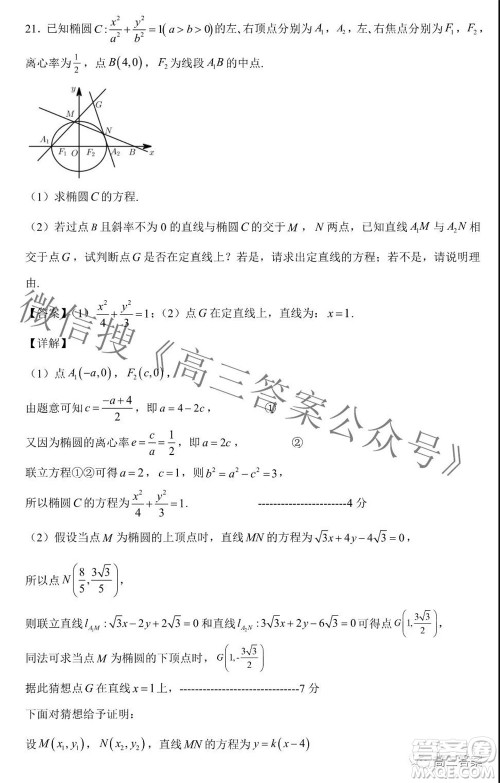 21. 已知椭圆 C : x²/a² + y²/b² = 1(a > b > 0) 的左、右顶点分别为 A₁，A₂，左、右焦点分别为 F₁，F₂，
离心率为 1/2，点 B(4,0)，F₂ 为线段 A₁B 的中点.
y
G
M
N
A₁ F₁ O F₂ A₂ B x
（1）求椭圆 C 的方程.
（2）若过点 B 且斜率不为 0 的直线与椭圆 C 的交于 M，N 两点，已知直线 A₁M 与 A₂N 相
交于点 G，试判断点 G 是否在定直线上？若是，请求出定直线的方程；若不是，请说明理
由.
【答案】（1）x²/4 + y²/3 = 1；（2）点 G 在定直线上，直线为：x = 1.
【详解】
（1）点 A₁(−a,0)，F₂(c,0)，
由题意可知 c = (−a + 4)/2，即 a = 4 − 2c， ①
又因为椭圆的离心率 e = c/a = 1/2，即 a = 2c， ②
联立方程①②可得 a = 2，c = 1，则 b² = a² − c² = 3，
所以椭圆 C 的方程为 x²/4 + y²/3 = 1. ------------------------4 分
（2）假设当点 M 为椭圆的上顶点时，直线 MN 的方程为 √3x + 4y − 4√3 = 0，
所以点 N(8/5, 3√3/5)，
则联立直线 l_{A₁M} : √3x − 2y + 2√3 = 0 和直线 l_{A₂N} : 3√3x + 2y − 6√3 = 0 可得点 G(1, 3√3/2)，
同法可求当点 M 为椭圆的下顶点时，G(1, -3√3/2)
据此猜想点 G 在直线 x = 1 上，--------------------------------7 分
下面对猜想给予证明：
设 M(x₁, y₁)，N(x₂, y₂)，直线 MN 的方程为 y = k(x − 4)
微信搜《高三答案公众号》
高三答案